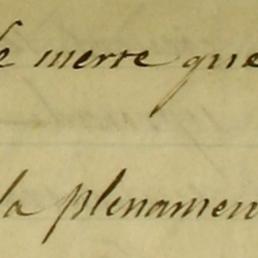 e merre que
la plenamen